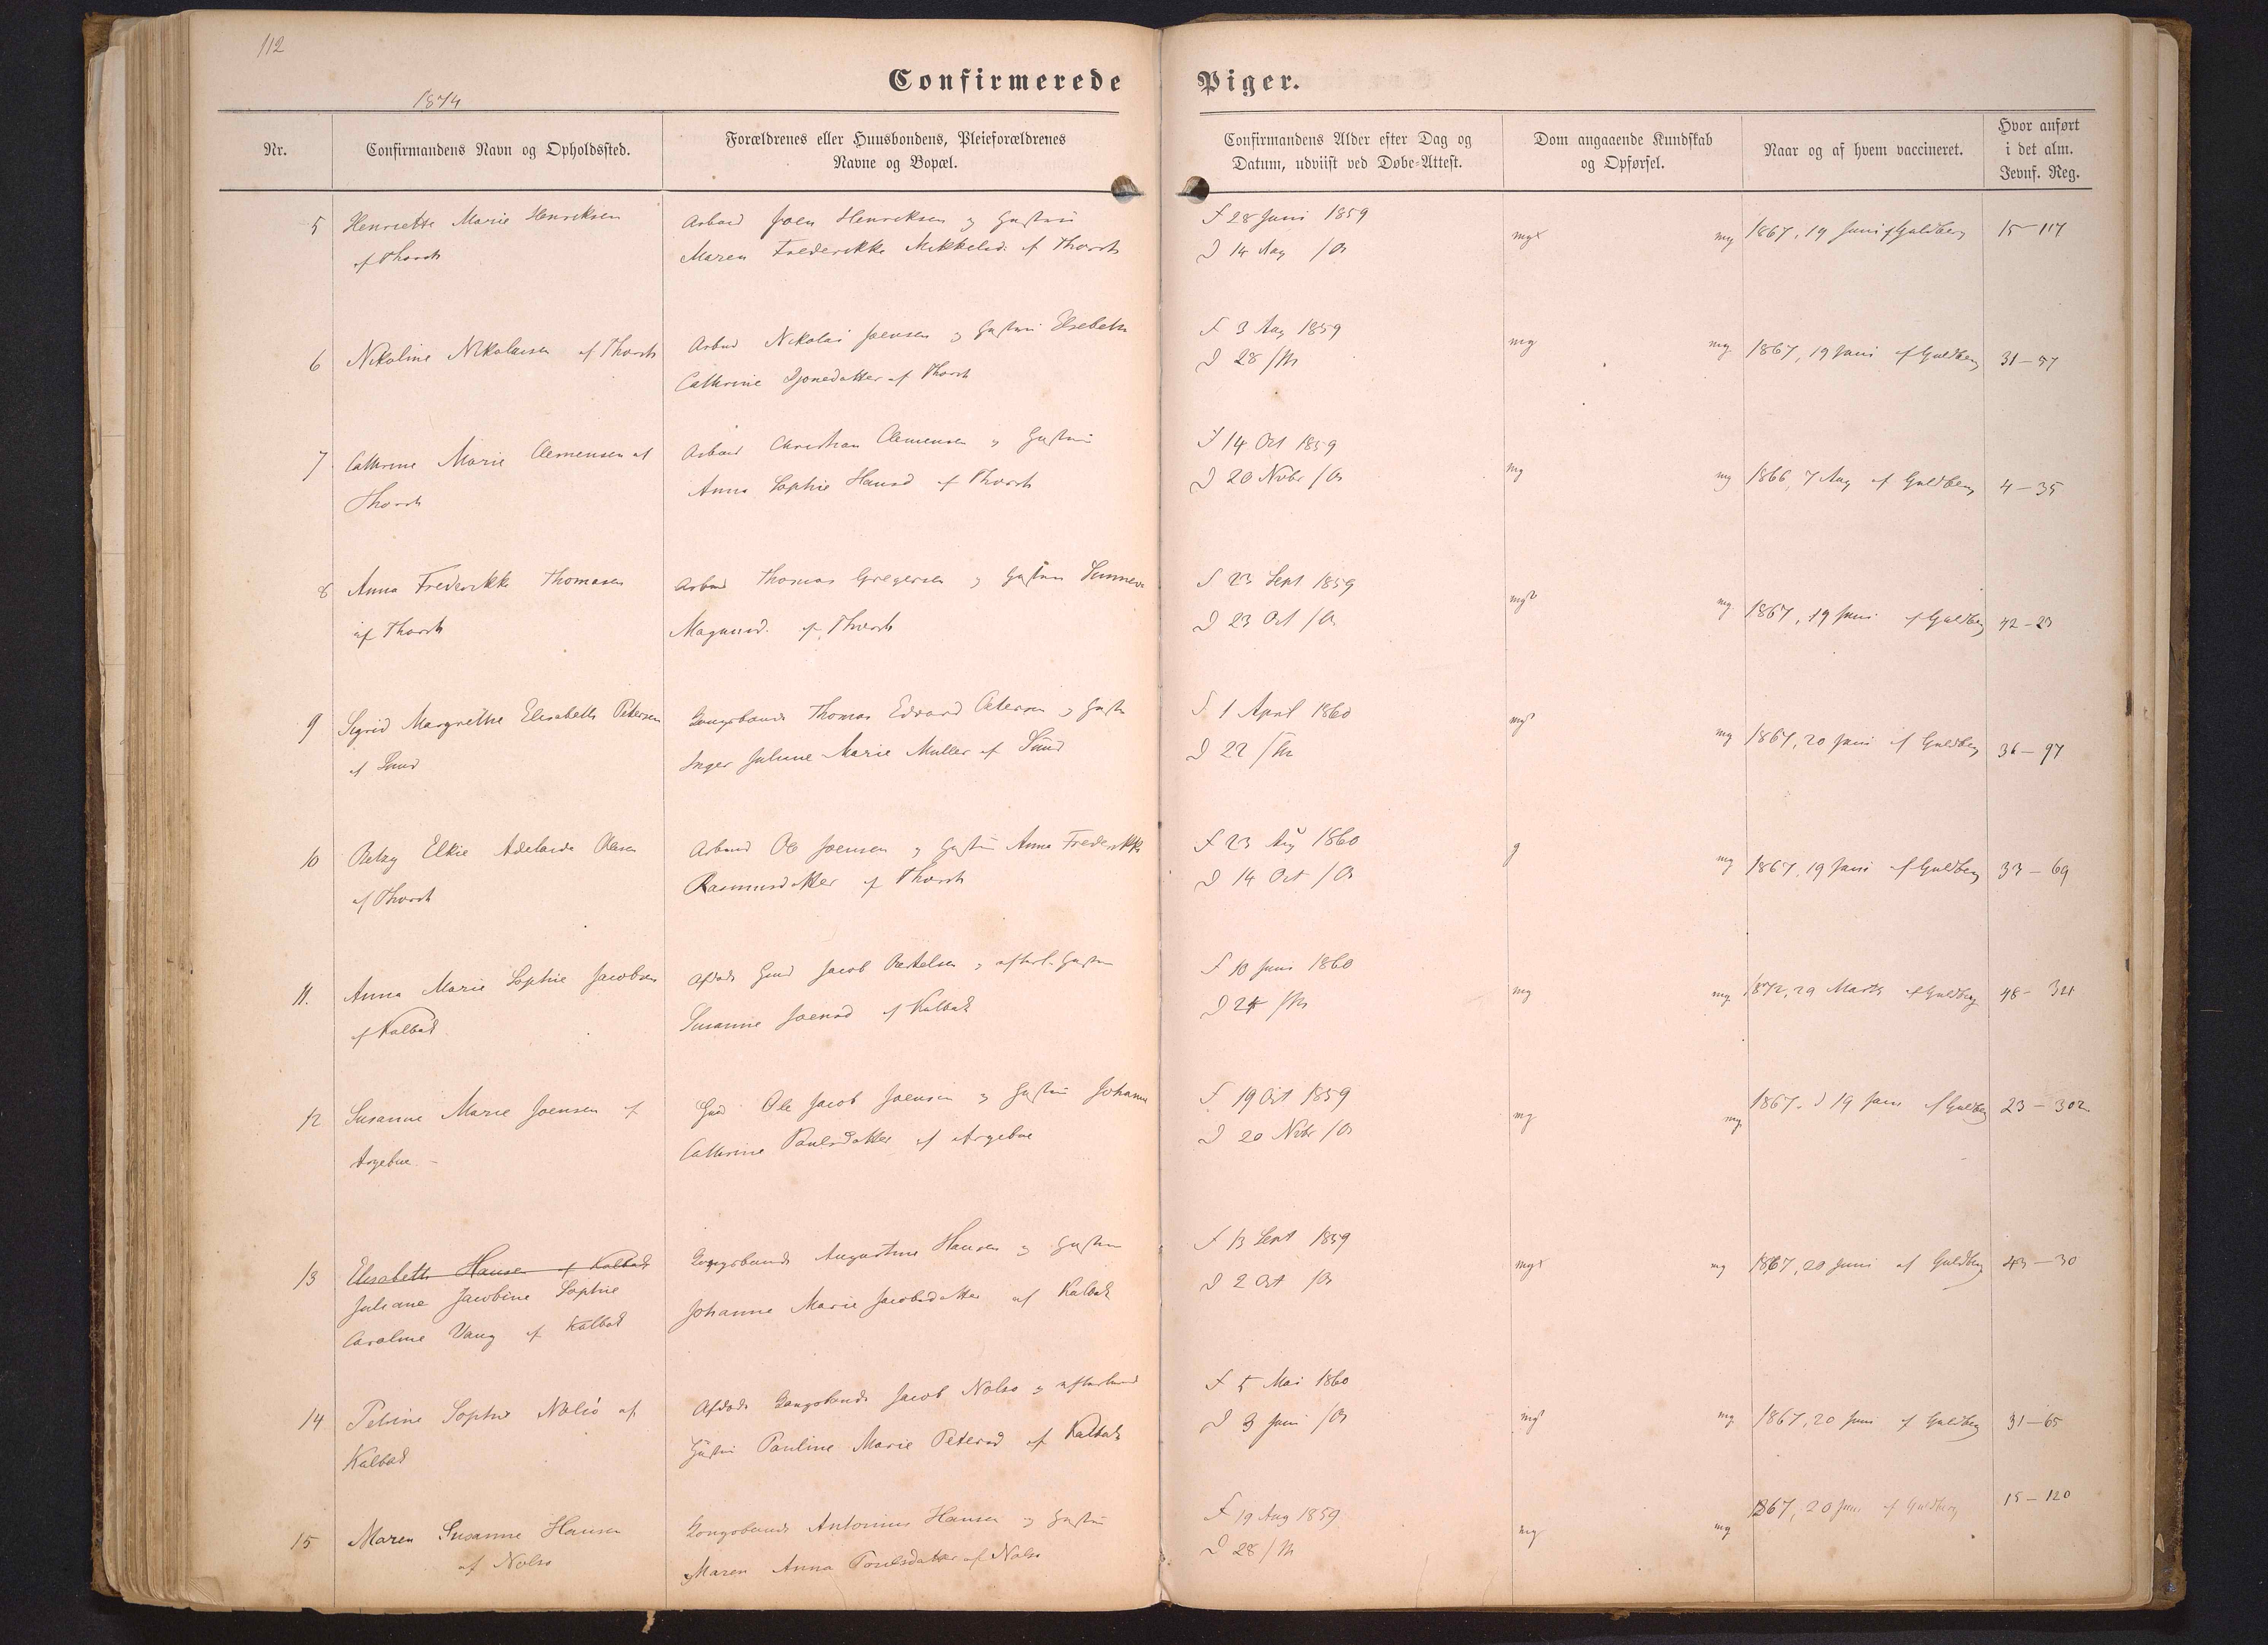 112
Confirmerede Piger.
1874
Nr.
Confirmandens Navn og Opholdssted.
Forældrenes eller Huusbondens, Pleieforældrenes
Navne og Bopæl.
Confirmandens Alder efter Dag og
Datum, udviist ved Døbe-Attest.
Dom angaaende Kundskab
og Opførsel.
Naar og af hvem vaccineret.
Hvor anført
i det alm.
Jevnf. Reg.
5 Henriette Marie Henriksen
af Thorsh
Arbmd Joen Henriksen og Hustru
Maren Frederikke Mikkelsd. af Thorsh
F 28 Juni 1859
D 14 Aug
mgx mg 1867, 19 Juni af Guldberg 15-117
6 Nikoline Nikolaisen af Thorsh
Arbmd Nikolai Joensen og Hustru Elsebeth
Cathrine Djonedatter af Thorsh
F 3 Aug 1859
D 28
mg mg 1867, 19 Juni af Guldberg 31-57
7 Cathrine Marie Clemensen af
Thorsh
Arbmd Christian Clemensen og Hustru
Anna Sophie Hansd af Thorsh
F 14 Oct 1859
D 20 Novbr
mg mg 1866, 7 Aug af Guldberg 4-35
8 Anna Frederikke Thomasen
af Thorsh
Arbmd Thomas Gregersen og Hustru Sunneva
Magnusd. af Thorsh
F 23 Sept 1859
D 23 Oct
mg mg 1867, 19 Juni af Guldberg 42-23
9 Sigrid Margrethe Elisabeth Petersen
af Sund
Kongsbonde Thomas Edvard Petersen og Hustru
Inger Juliane Marie Müller af Sund
F 1 April 1860
D 22
mg mg 1867, 20 Juni af Guldberg 36-97
10 Betzy Elkie Adelaide Olesen
af Thorsh
Arbmd Ole Joensen og Hustru Anna Frederikke
Rasmusdatter af Thorsh
F 23 Aug 1860
D 14 Oct
g mg 1867, 19 Juni af Guldberg 33-69
11. Anna Marie Sophie Jacobsen
af Kalbak
Afdøde Jacob Bertelsen og efterl. Hustru
Susanne Joensd af Kalbak
F 10 Juni 1860
D 24
mg mg 1872, 29 Marts af Guldberg 48-321
12 Susanne Marie Joensen af
Argebøe.
Ole Jacob Joensen og Hustru Johanne
Cathrine Poulsdatter af Argebøe
F 19 Oct 1859
D 20 Novbr
mg mg 1867. d 19 Juni af Guldberg 23-302
13 Elisabeth Hansen af Kalbak
Juliane Jacobine Sophie
Caroline Vang af Kalbak
Kongsbonde Augustinus Hansen og Hustru
Johanne Marie Jacobsdatter af Kalbak
F 13 Sept 1859
D 2 Oct
mgx mg 1867, 20 Juni af Guldberg 43-30
14 Petrine Sophie Nolsø af
Kalbak
Afdøde Kongsbonde Jacob Nolsø og efterladt
Hustru Pauline Marie Petersd af Kalbak
F 5 Mai 1860
D 3 Juni
mg mg 1867, 20 Juni af Guldberg 31-65
15 Maren Susanne Hansen
af Nolsø
Kongsbonde Antonius Hansen og Hustru
Maren Anna Poulsdatter af Nolsø
F 19 Aug 1859
D 28
mg mg 1867, 20 Juni af Guldberg 15-120